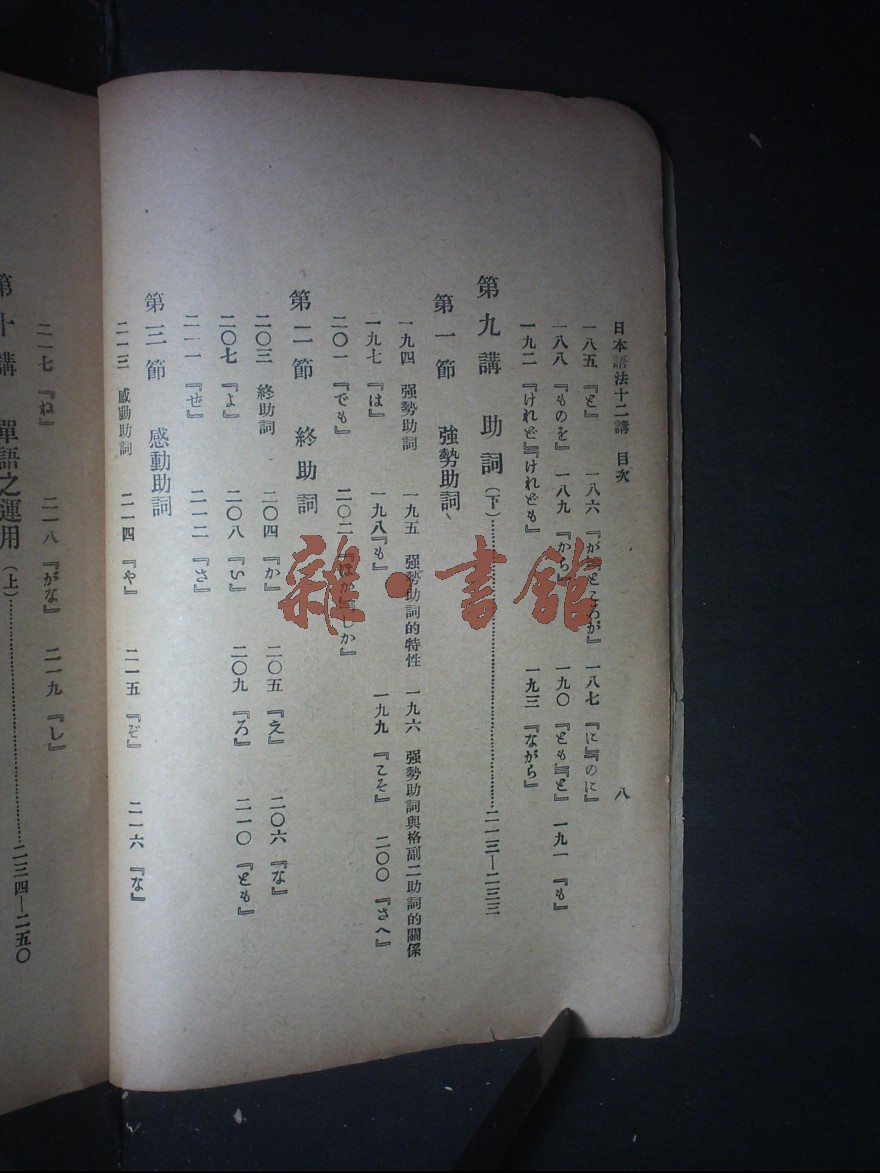 日本語法十二講　目次　八
一八五『と』　一八六『が』『ところが』　一八七『に』『のに』
一八八『ものを』　一八九『から』　一九〇『とも』『と』　一九一『も』
一九二『けれど』『けれども』　一九三『ながら』
第九講　助詞(下)…………二一三—二三三
第一節　強勢助詞
一九四 强勢助詞　一九五 强勢助詞的特性　一九六 强勢助詞與格副二助詞的關係
一九七『は』　一九八『も』　一九九『こそ』　二〇〇『さへ』
二〇一『でも』　二〇二『ほか』『しか』
第二節　終助詞
二〇三 終助詞　二〇四『か』　二〇五『え』　二〇六『な』
二〇七『よ』　二〇八『い』　二〇九『ろ』　二一〇『とも』
二一一『せ』　二一二『さ』
第三節　感動助詞
二一三 感動助詞　二一四『や』　二一五『ぞ』　二一六『な』
二一七『ね』　二一八『がな』　二一九『し』
第十講　單語之運用(上)…………二三四—二五〇
雜·書館